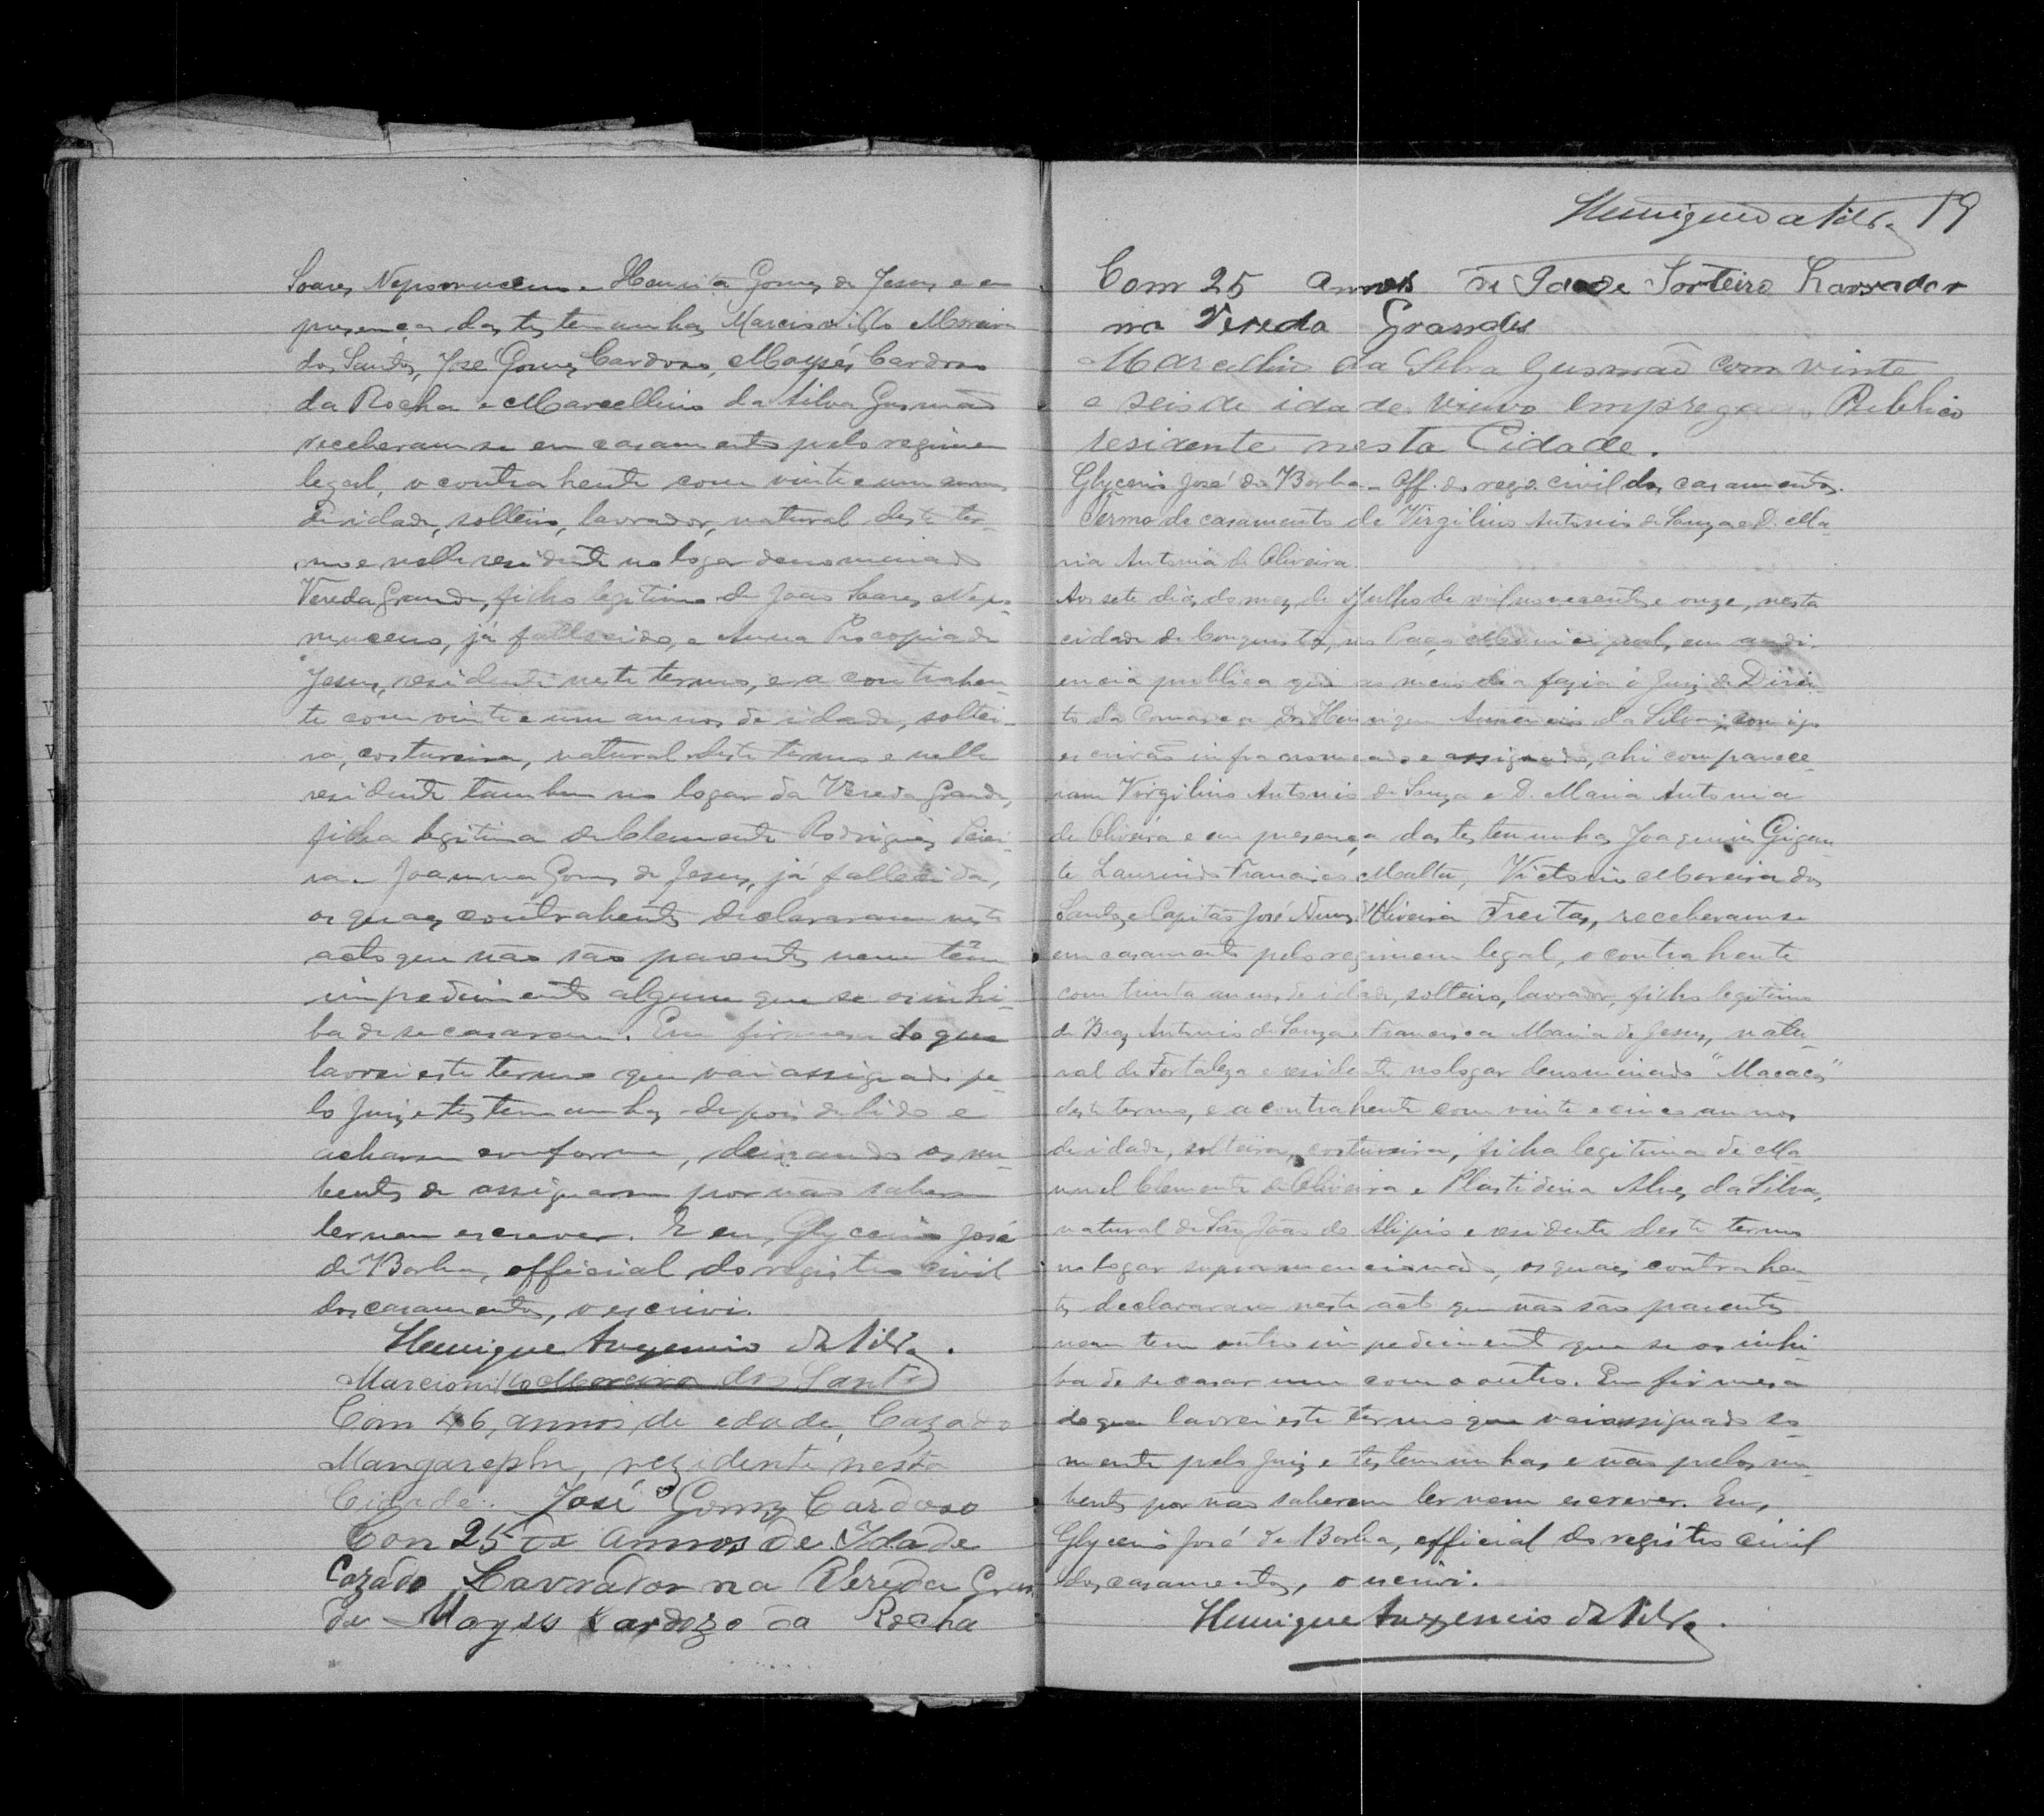 Soares Nepomuceno e Henrita Gomes de Jesus e em
presença das testemunhas Marcionillo Moreira
dos Santos, José Gomes Cardoso, Moysés Cardoso
da Rocha e Marcellino da Silva Gusmão
receberam-se em casamento pelo regimen
legal, o contrahente com vinte e um annos
de idade, solteiro, lavrador, natural deste ter-
mo e nelle residente no logar denominado
Vereda Grande, filho legitimo de João Soares Nepo-
muceno, já fallecido, e Anna Procopia de
Jesus, residente neste termo, e a contrahen-
te com vinte e um annos de idade, soltei-
ra, costureira, natural deste termo e nelle
residente tambem no logar da Vereda Grande,
filha legitima de Clemente Rodrigues
e Joanna Gomes de Jesus, já fallecida,
os quaes contrahentes declararam neste
acto que não são parentes nem têm
impedimento algum que se os inhi-
ba de se casarem. Em firmesa do que
lavrei este termo que vai assignado pe-
lo Juiz e testemunhas depois de lido e
acharem conforme, deixando os nu-
bentes de assignarem por não saberem
ler nem escrever. E eu, Glycerio José
de Borba, official do registro civil
dos casamentos, o escrivi.
Henrique Auxencio da Silva.
Marcionillo Moreira dos Santos
Com 46, annos de edade, Cazado
rezidente nesta
Cidade. José Gomes Cardoso
Con 25 de annos de Idade
Cazado Lavrador na Vereda Gran
de Moyses Cardozo da Rocha
Henrique da Silva 19
Com 25 annos de Idade Sorteiro Lavrador
na Vereda Grandes
Marcellino da Silva Gusmão com vinte
e seis de idade viuvo empregado Publico
residente nesta Cidade.
Glycerio José de Borba - Off. do rego. civil dos casamentos.
Termo de casamento de Virgilino Antonio de Souza e D. Ma-
ria Antonia de Oliveira.
Aos sete dias do mez de Julho de mil novecentos e onze, nesta
cidade de Conquista, no Paço Municipal, em audi-
encia publica que ao meio dia fazia o Juiz de Direi-
to da Comarca Dr. Henrique Auxencio da Silva, comigo
escrivão infra nomeado e assignado, ahi comparece-
ram Virgilino Antonio de Souza e D. Maria Antonia
de Oliveira e em presença das testemunhas Joaquim Gigan-
te Laurindo Francisco Malta, Victorio Moreira dos
Santos e Capitão José Nunes d'Oliveira Freitas, receberam-se
em casamento pelo regimem legal, o contrahente
com trinta annos de idade, solteiro, lavrador, filho legitimo
de Braz Antonio de Souza e Francisca Maria de Jesus, natu-
ral de Fortaleza e residente no logar denominado "Macacos"
deste termo, e a contrahente com vinte e cinco annos
de idade, solteira, costureira, filha legitima de Ma-
nuel Clemente de Oliveira e Plastidina Alves da Silva,
natural de São João do Alipio e residente deste termo
no logar supramencionado, os quaes contrahen-
tes declararam neste acto que não são parentes
nem tem outro impedimento que se os inhi-
ba de se casar um com o outro. Em firmesa
do que lavrei este termo que vai assignado so-
mente pelo Juiz e testemunhas e não pelos nu-
bentes por não saberem ler nem escrever. Eu,
Glycerio José de Borba, official do registro civil
dos casamentos, o escrivi.
Henrique Auxencio da Silva.